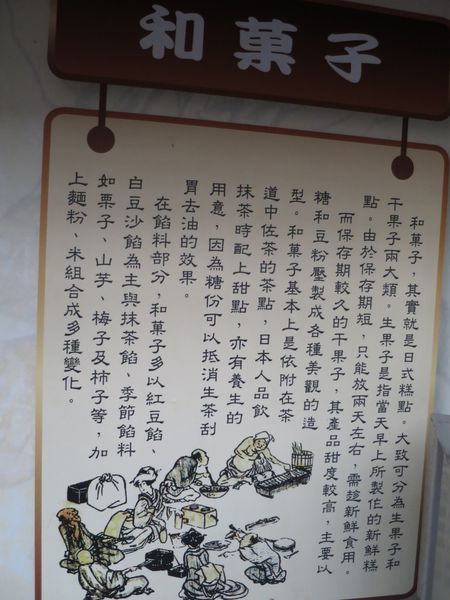 和菓子
和菓子，其實就是日式糕點。大致可分為生果子和
干果子兩大類。生果子是指當天早上所製作的新鮮糕
點。由於保存期短，只能放兩天左右，需趁新鮮食用。
而保存期較久的干果子，其產品甜度較高，主要以
糖和豆粉壓製成各種美觀的造
型。和菓子基本上是依附在茶
道中佐茶的茶點，日本人品飲
抹茶時配上甜點，亦有養生的
用意，因為糖份可以抵消生茶刮
胃去油的效果。
在餡料部分，和菓子多以紅豆餡、
白豆沙餡為主與抹茶餡、季節餡料
如栗子、山芋、梅子及柿子等，加
上麵粉、米組合成多種變化。